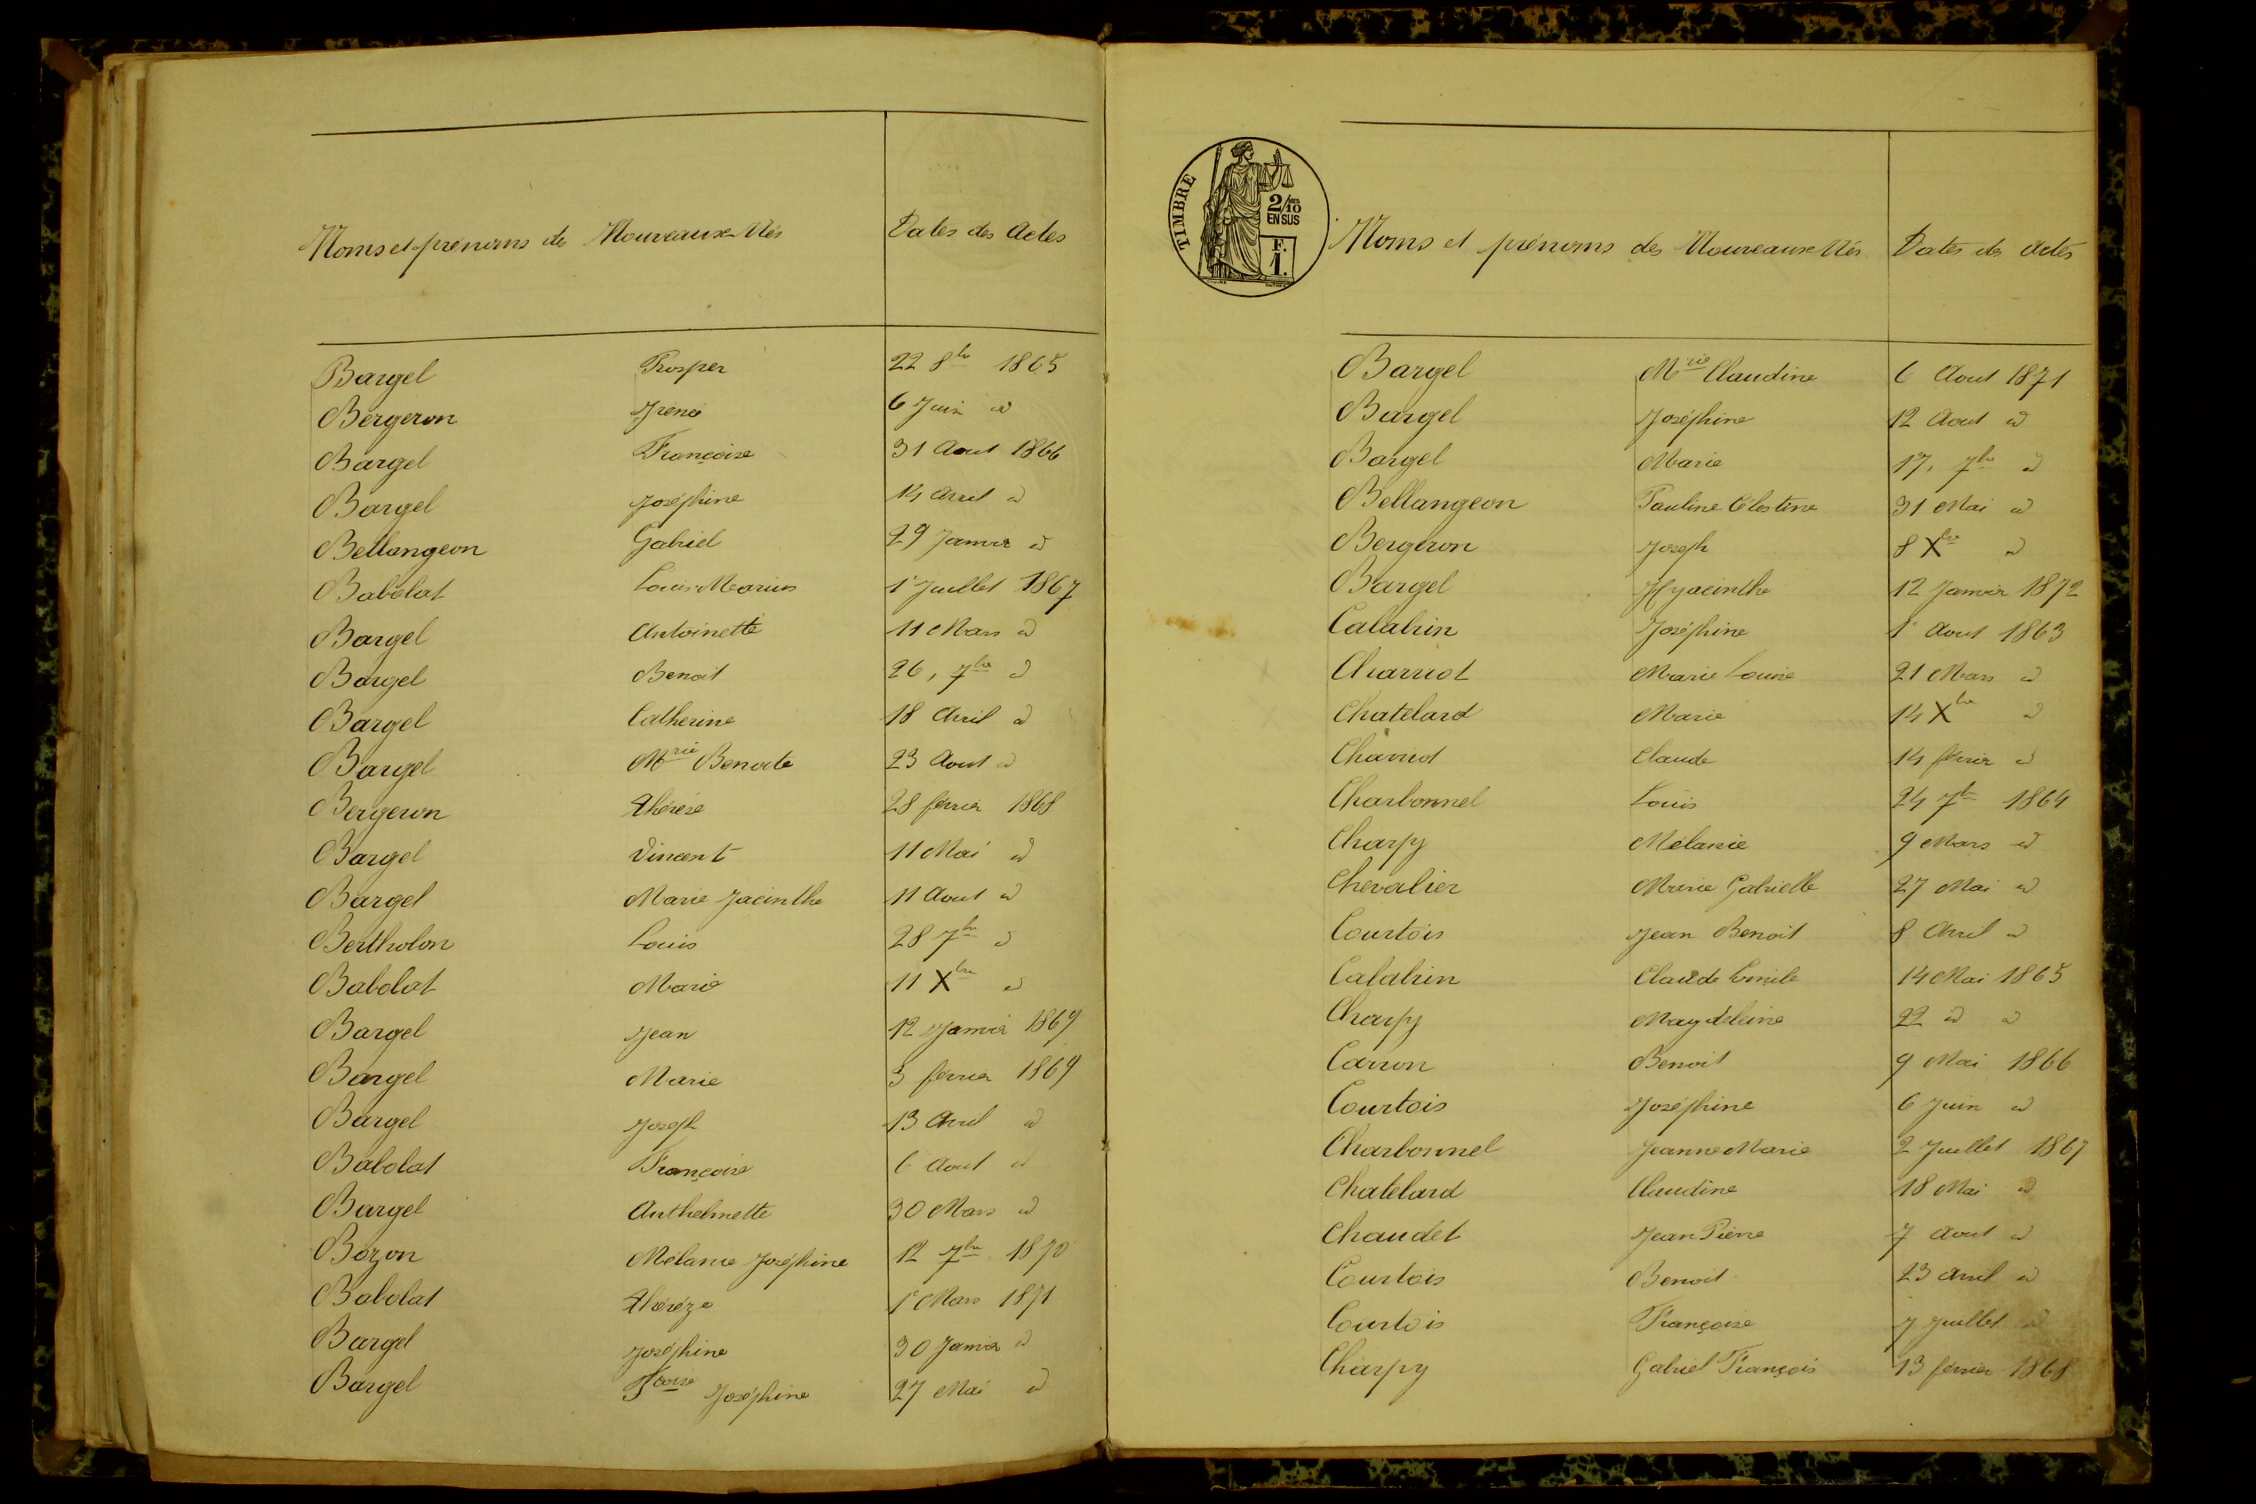 Noms et prénoms des Nouveaux Nés Dates des Actes
Bargel Prosper 22 8bre 1865
Bergeron Irené 6 Juin id
Bargel Françoise 31 Aout 1866
Bargel Joséphine 14 Avril id
Bellangeon Gabriel 29 Janvier id
Babolat Louis Marius 1er Juillet 1867
Bargel Antoinette 11 Mars id
Bargel Benoit 26, 7bre id
Bargel Catherine 18 Avril id
Bargel Mrie Benoite 23 Aout id
Bergeron Thérèse 28 février 1868
Bargel Vincent 11 Mai id
Bargel Marie Jacinthe 11 Aout id
Bertholon Louis 28 7bre id
Babolat Marie 11 Xbre id
Bargel Jean 12 Janvier 1869
Bargel Marie 3 février 1869
Bargel Joseph 13 Avril id
Babolat Françoise 6 Aout id
Bargel Anthelmette 30 Mars id
Bozon Mélanie Joséphine 12 7bre 1870
Babolat Thérèze 1er Mars 1871
Bargel Joséphine 30 Janvier id
Bargel Fcoise Joséphine 27 Mai id
TIMBRE
2/10 EN SUS
F.
1.
Noms et prénoms des Nouveaux Nés Dates des Actes
Bargel Mrie Claudine 6 Aout 1871
Bargel Joséphine 12 Aout id
Bargel Marie 17, 7bre id
Bellangeon Pauline Célestine 31 Mai id
Bergeron Joseph 8 Xbre id
Bargel Hyacinthe 12 Janvier 1872
Calabrin Joséphine 1er Aout 1863
Charriot Marie Louise 21 Mars id
Chatelard Marie 14 Xbre id
Charriot Claude 14 février id
Charbonnel Louis 24 7bre 1864
Charpy Mélanie 9 Mars id
Chevalier Marie Gabrielle 27 Mai id
Courtois Jean Benoit 8 Avril id
Calabrin Claude Emile 14 Mai 1865
Charpy Magdeleine 22 id id
Carron Benoit 9 Mai 1866
Courtois Joséphine 6 Juin id
Charbonnel Jeanne Marie 2 Juillet 1867
Chatelard Claudine 18 Mai id
Chaudet Jean Pierre 7 Aout id
Courtois Benoit 23 Avril id
Courtois Françoise 7 Juillet id
Charpy Gabriel François 13 février 1868